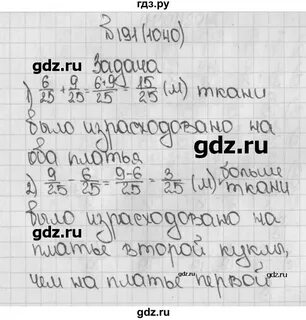 гдз.ру
В 191 (1040)
gdz.ru gdz.ru
Задача
1) 6/25 + 9/25 = 6+9/25 = 15/25 (м) ткани
было израсходовано на
gdz.ru
оба платья
2) 9/25 - 6/25 = 9-6/25 = 3/25 (м) больше
ткани
gdz.ru
было израсходовано на
платье второй куклы,
gdz.ru
чем на платье первой
gdz.ru
gdz.ru